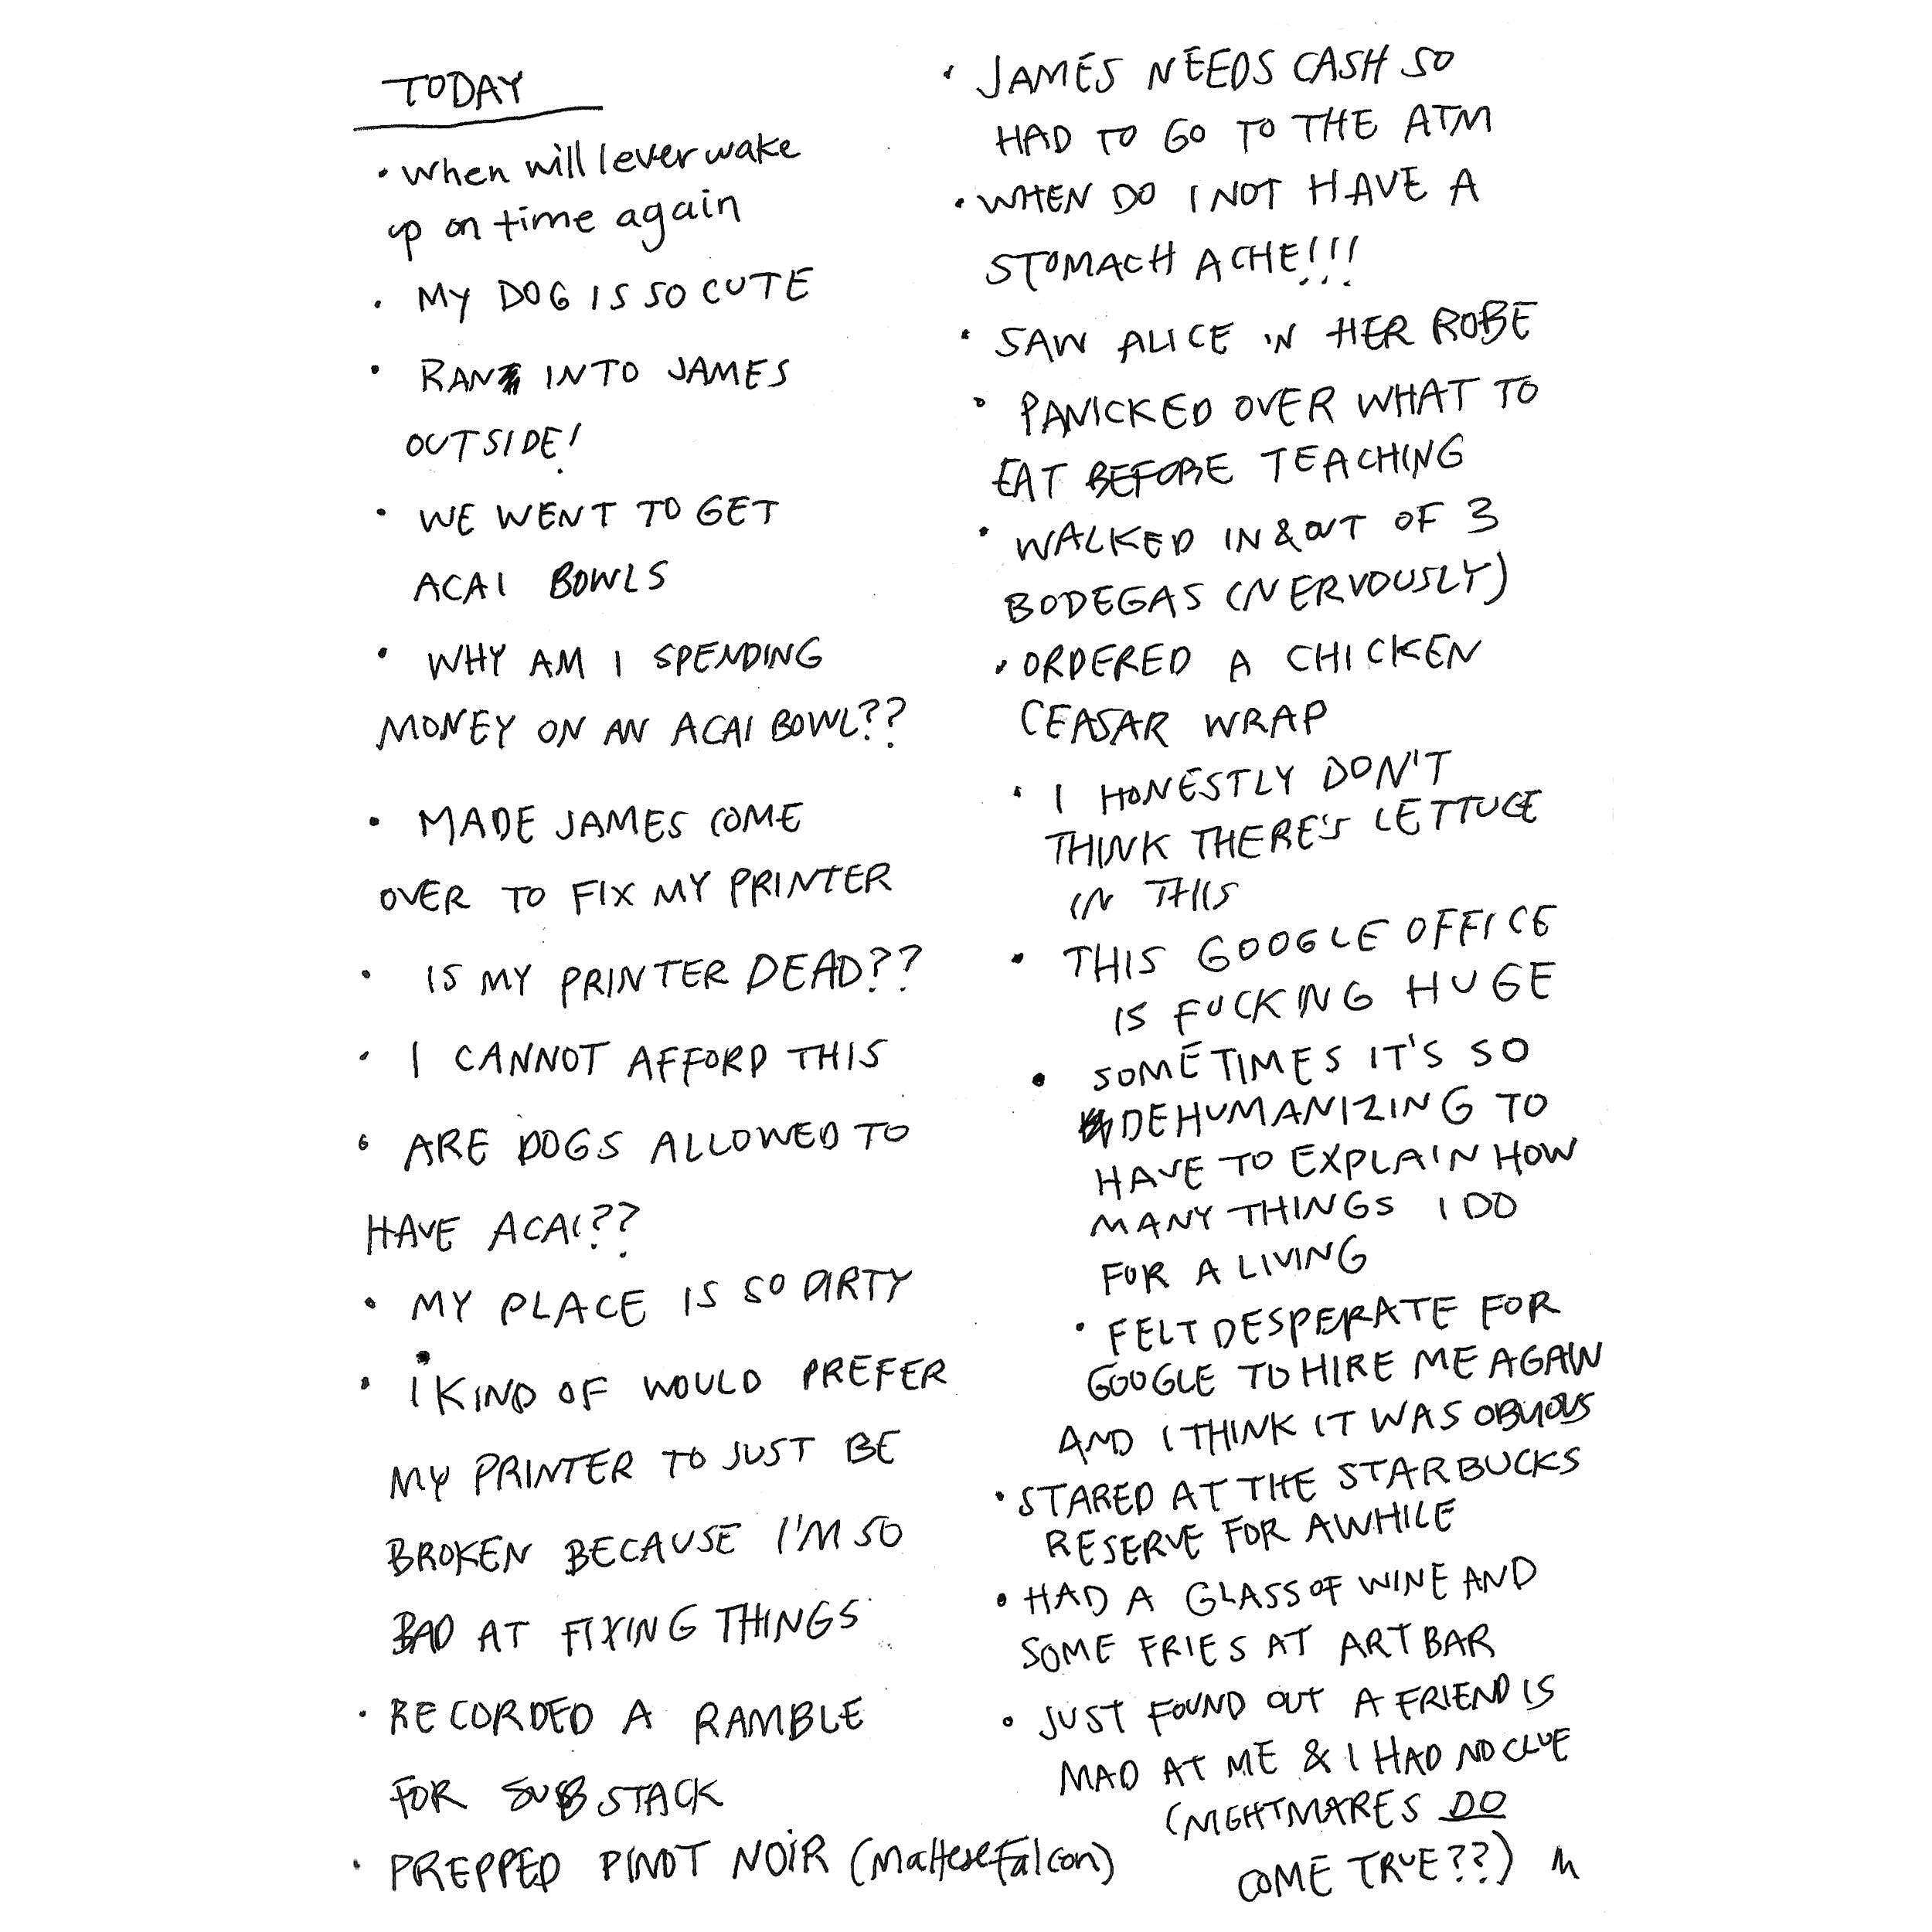 TODAY
• When will I ever wake
up on time again
• MY DOG IS SO CUTE
• RAN INTO JAMES
OUTSIDE!
• WE WENT TO GET
ACAI BOWLS
• WHY AM I SPENDING
MONEY ON AN ACAI BOWL??
• MADE JAMES COME
OVER TO FIX MY PRINTER
• IS MY PRINTER DEAD??
• I CANNOT AFFORD THIS
• ARE DOGS ALLOWED TO
HAVE ACAI??
• MY PLACE IS SO DIRTY
• I KIND OF WOULD PREFER
MY PRINTER TO JUST BE
BROKEN BECAUSE I'M SO
BAD AT FIXING THINGS
• RECORDED A RAMBLE
FOR SUBSTACK
• PREPPED PINOT NOIR (Maltese Falcon)
• JAMES NEEDS CASH SO
HAD TO GO TO THE ATM
• WHEN DO I NOT HAVE A
STOMACH ACHE!!!
• SAW ALICE IN HER ROBE
• PANICKED OVER WHAT TO
EAT BEFORE TEACHING
• WALKED IN & OUT OF 3
BODEGAS (NERVOUSLY)
• ORDERED A CHICKEN
CEASAR WRAP
• I HONESTLY DON'T
THINK THERE'S LETTUCE
IN THIS
• THIS GOOGLE OFFICE
IS FUCKING HUGE
• SOMETIMES IT'S SO
DEHUMANIZING TO
HAVE TO EXPLAIN HOW
MANY THINGS I DO
FOR A LIVING
• FELT DESPERATE FOR
GOOGLE TO HIRE ME AGAIN
AND I THINK IT WAS OBVIOUS
• STARED AT THE STARBUCKS
RESERVE FOR AWHILE
• HAD A GLASS OF WINE AND
SOME FRIES AT ART BAR
• JUST FOUND OUT A FRIEND IS
MAD AT ME & I HAD NO CLUE
(NIGHTMARES DO
COME TRUE??)